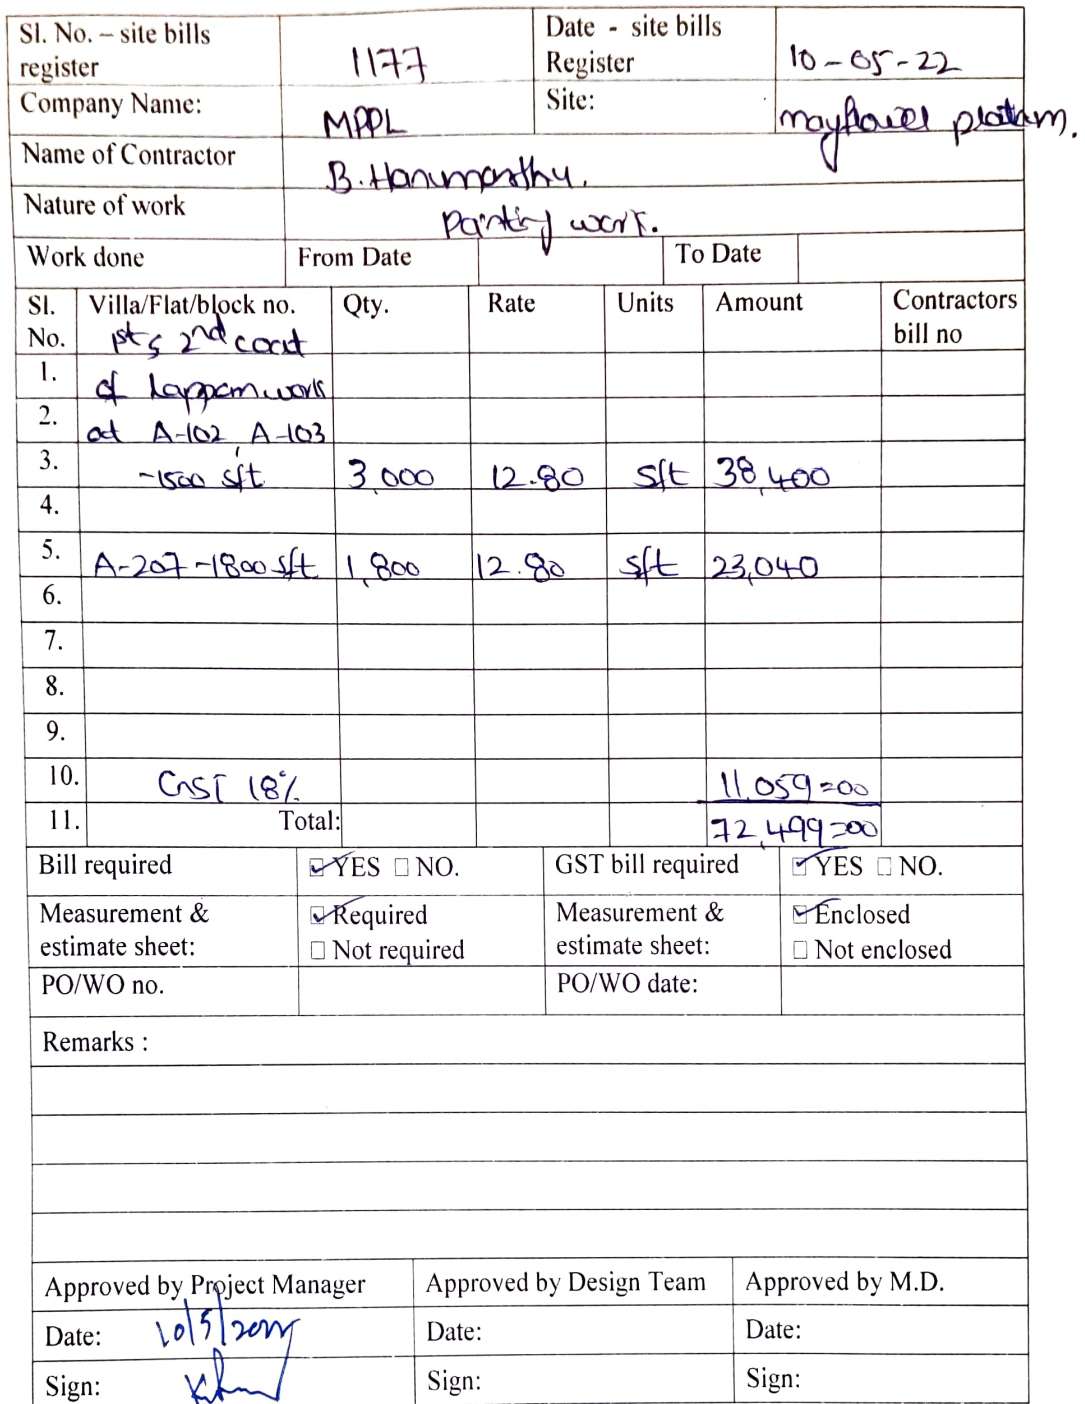 Sl. No. – site bills register 1177 Date - site bills Register 10-05-22
Company Name: MPPL Site: mayflower platinm.
Name of Contractor B. Hanumanthu.
Nature of work Painting work.
Work done From Date To Date
Sl. No. Villa/Flat/block no. Qty. Rate Units Amount Contractors bill no
1st & 2nd coat
1. of lappam work
2. at A-102, A-103
3. -1500 sft 3,000 12.80 sft 38,400
4.
5. A-207-1800 sft 1,800 12.80 sft 23,040
6.
7.
8.
9.
10. GST 18% 11,059=00
11. Total: 72,499=00
Bill required YES NO. GST bill required YES NO.
Measurement & estimate sheet: Required Not required Measurement & estimate sheet: Enclosed Not enclosed
PO/WO no. PO/WO date:
Remarks :
Approved by Project Manager Approved by Design Team Approved by M.D.
Date: 10/5/2022 Date: Date:
Sign: Sign: Sign: